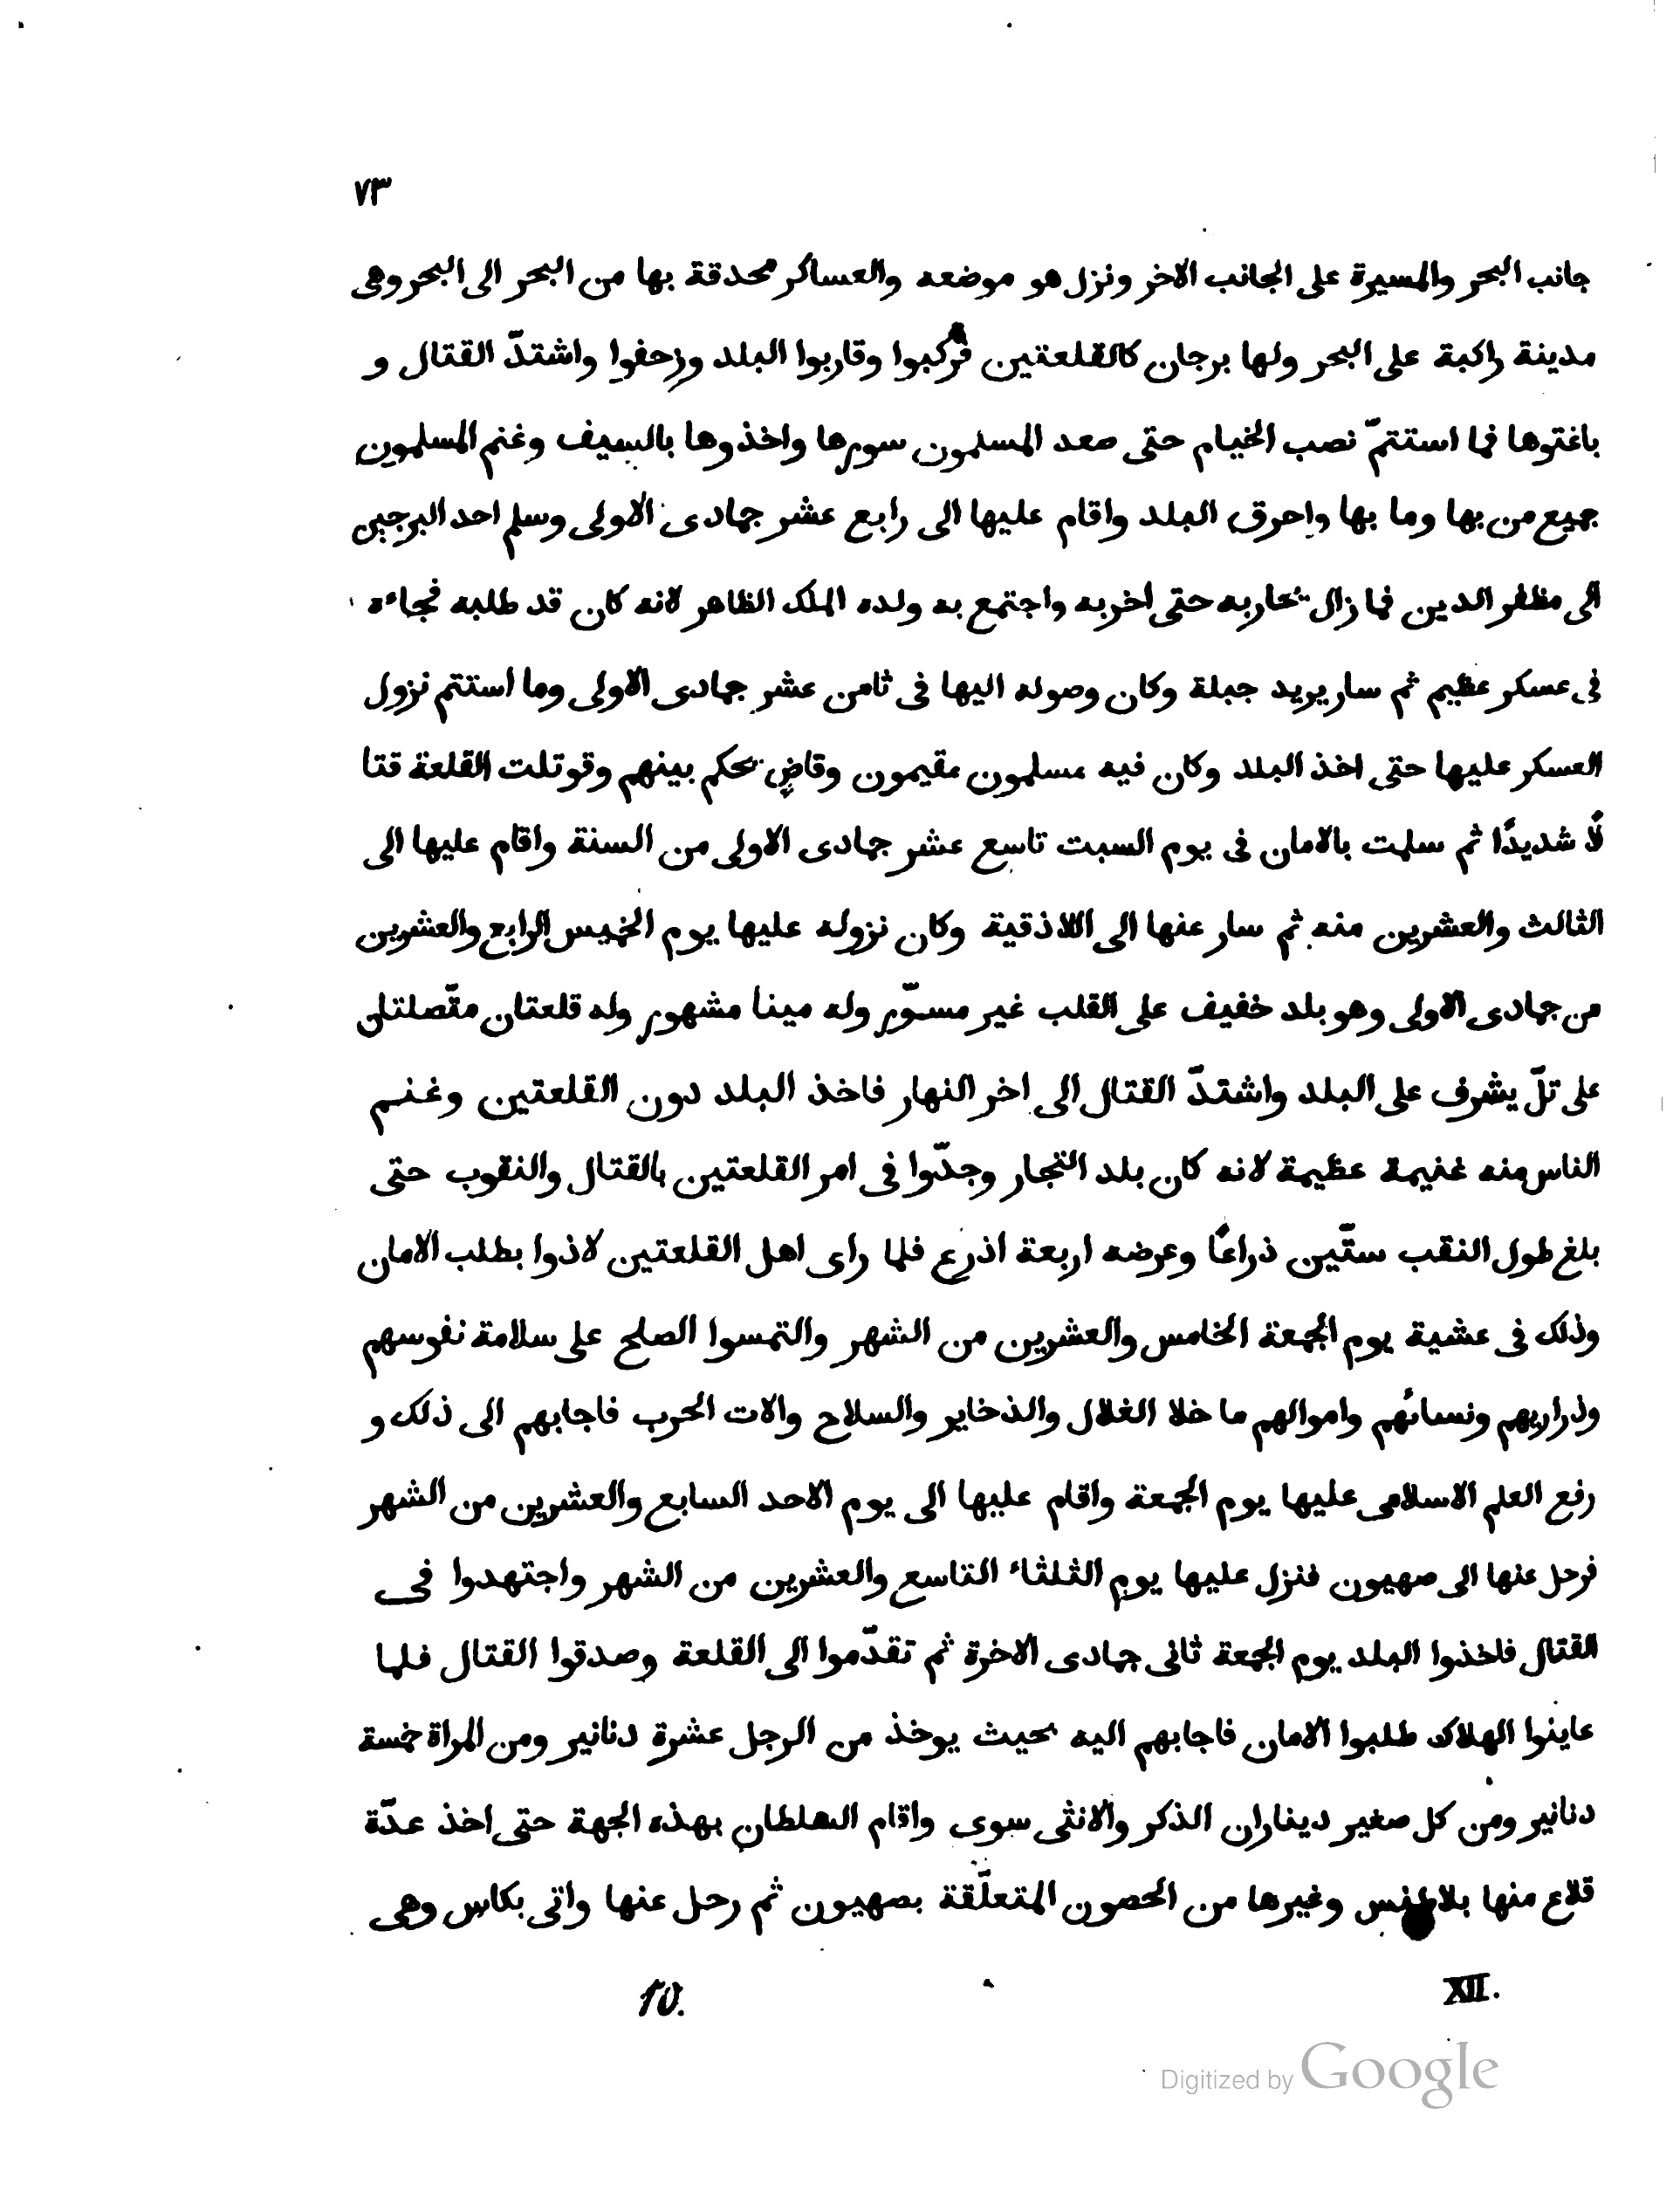 ٧٣
جانب البحر والمسيرة على الجانب الاخر ونزل هو موضعه والعساكر محدقة بها من البحر الى البحر وهى
مدينة راكبة على البحر ولها برجان كالقلعتين فركبوا وقاربوا البلد وزحفوا واشتدّ القتال و
باغتوها فما استتمّ نصب الخيام حتى صعد المسلمون سورها واخذوها بالسيف وغنم المسلمون
جميع من بها وما بها واحرق البلد واقام عليها الى رابع عشر جمادى الاولى وسلم احد البرجين
الى مظفر الدين فما زال يحاربه حتى اخربه واجتمع به ولده الملك الظاهر لانه كان قد طلبه فجاءه
فى عسكر عظيم ثم سار يريد جبلة وكان وصوله اليها فى ثامن عشر جمادى الاولى وما استتم نزول
العسكر عليها حتى اخذ البلد وكان فيه مسلمون مقيمون وقاضٍ يحكم بينهم وقوتلت القلعة قتا
لًا شديدًا ثم سلمت بالامان فى يوم السبت تاسع عشر جمادى الاولى من السنة واقام عليها الى
الثالث والعشرين منه ثم سار عنها الى اللاذقية وكان نزوله عليها يوم الخميس الرابع والعشرين
من جمادى الاولى وهو بلد خفيف على القلب غير مسوّر وله مينا مشهور وله قلعتان متّصلتان
على تلّ يشرف على البلد واشتدّ القتال الى اخر النهار فاخذ البلد دون القلعتين وغنم
الناس منه غنيمة عظيمة لانه كان بلد التجار وجدّوا فى امر القلعتين بالقتال والنقوب حتى
بلغ طول النقب ستّين ذراعًا وعرضه اربعة اذرع فلما راى اهل القلعتين لاذوا بطلب الامان
وذلك فى عشية يوم الجمعة الخامس والعشرين من الشهر والتمسوا الصلح على سلامة نفوسهم
وذراريهم ونسائهم واموالهم ما خلا الغلال والذخاير والسلاح والات الحرب فاجابهم الى ذلك و
رفع العلم الاسلامى عليها يوم الجمعة واقام عليها الى يوم الاحد السابع والعشرين من الشهر
فرحل عنها الى صهيون فنزل عليها يوم الثلثاء التاسع والعشرين من الشهر واجتهدوا فى
القتال فاخذوا البلد يوم الجمعة ثانى جمادى الاخرة ثم تقدّموا الى القلعة وصدقوا القتال فلما
عاينوا الهلاك طلبوا الامان فاجابهم اليه بحيث يوخذ من الرجل عشرة دنانير ومن المراة خمسة
دنانير ومن كل صغير ديناران الذكر والانثى سوى واقام السلطان بهذه الجهة حتى اخذ عدّة
قلاع منها بلاطنس وغيرها من الحصون المتعلّقة بصهيون ثم رحل عنها واتى بكاس وهى
XII. 10.
Digitized by Google